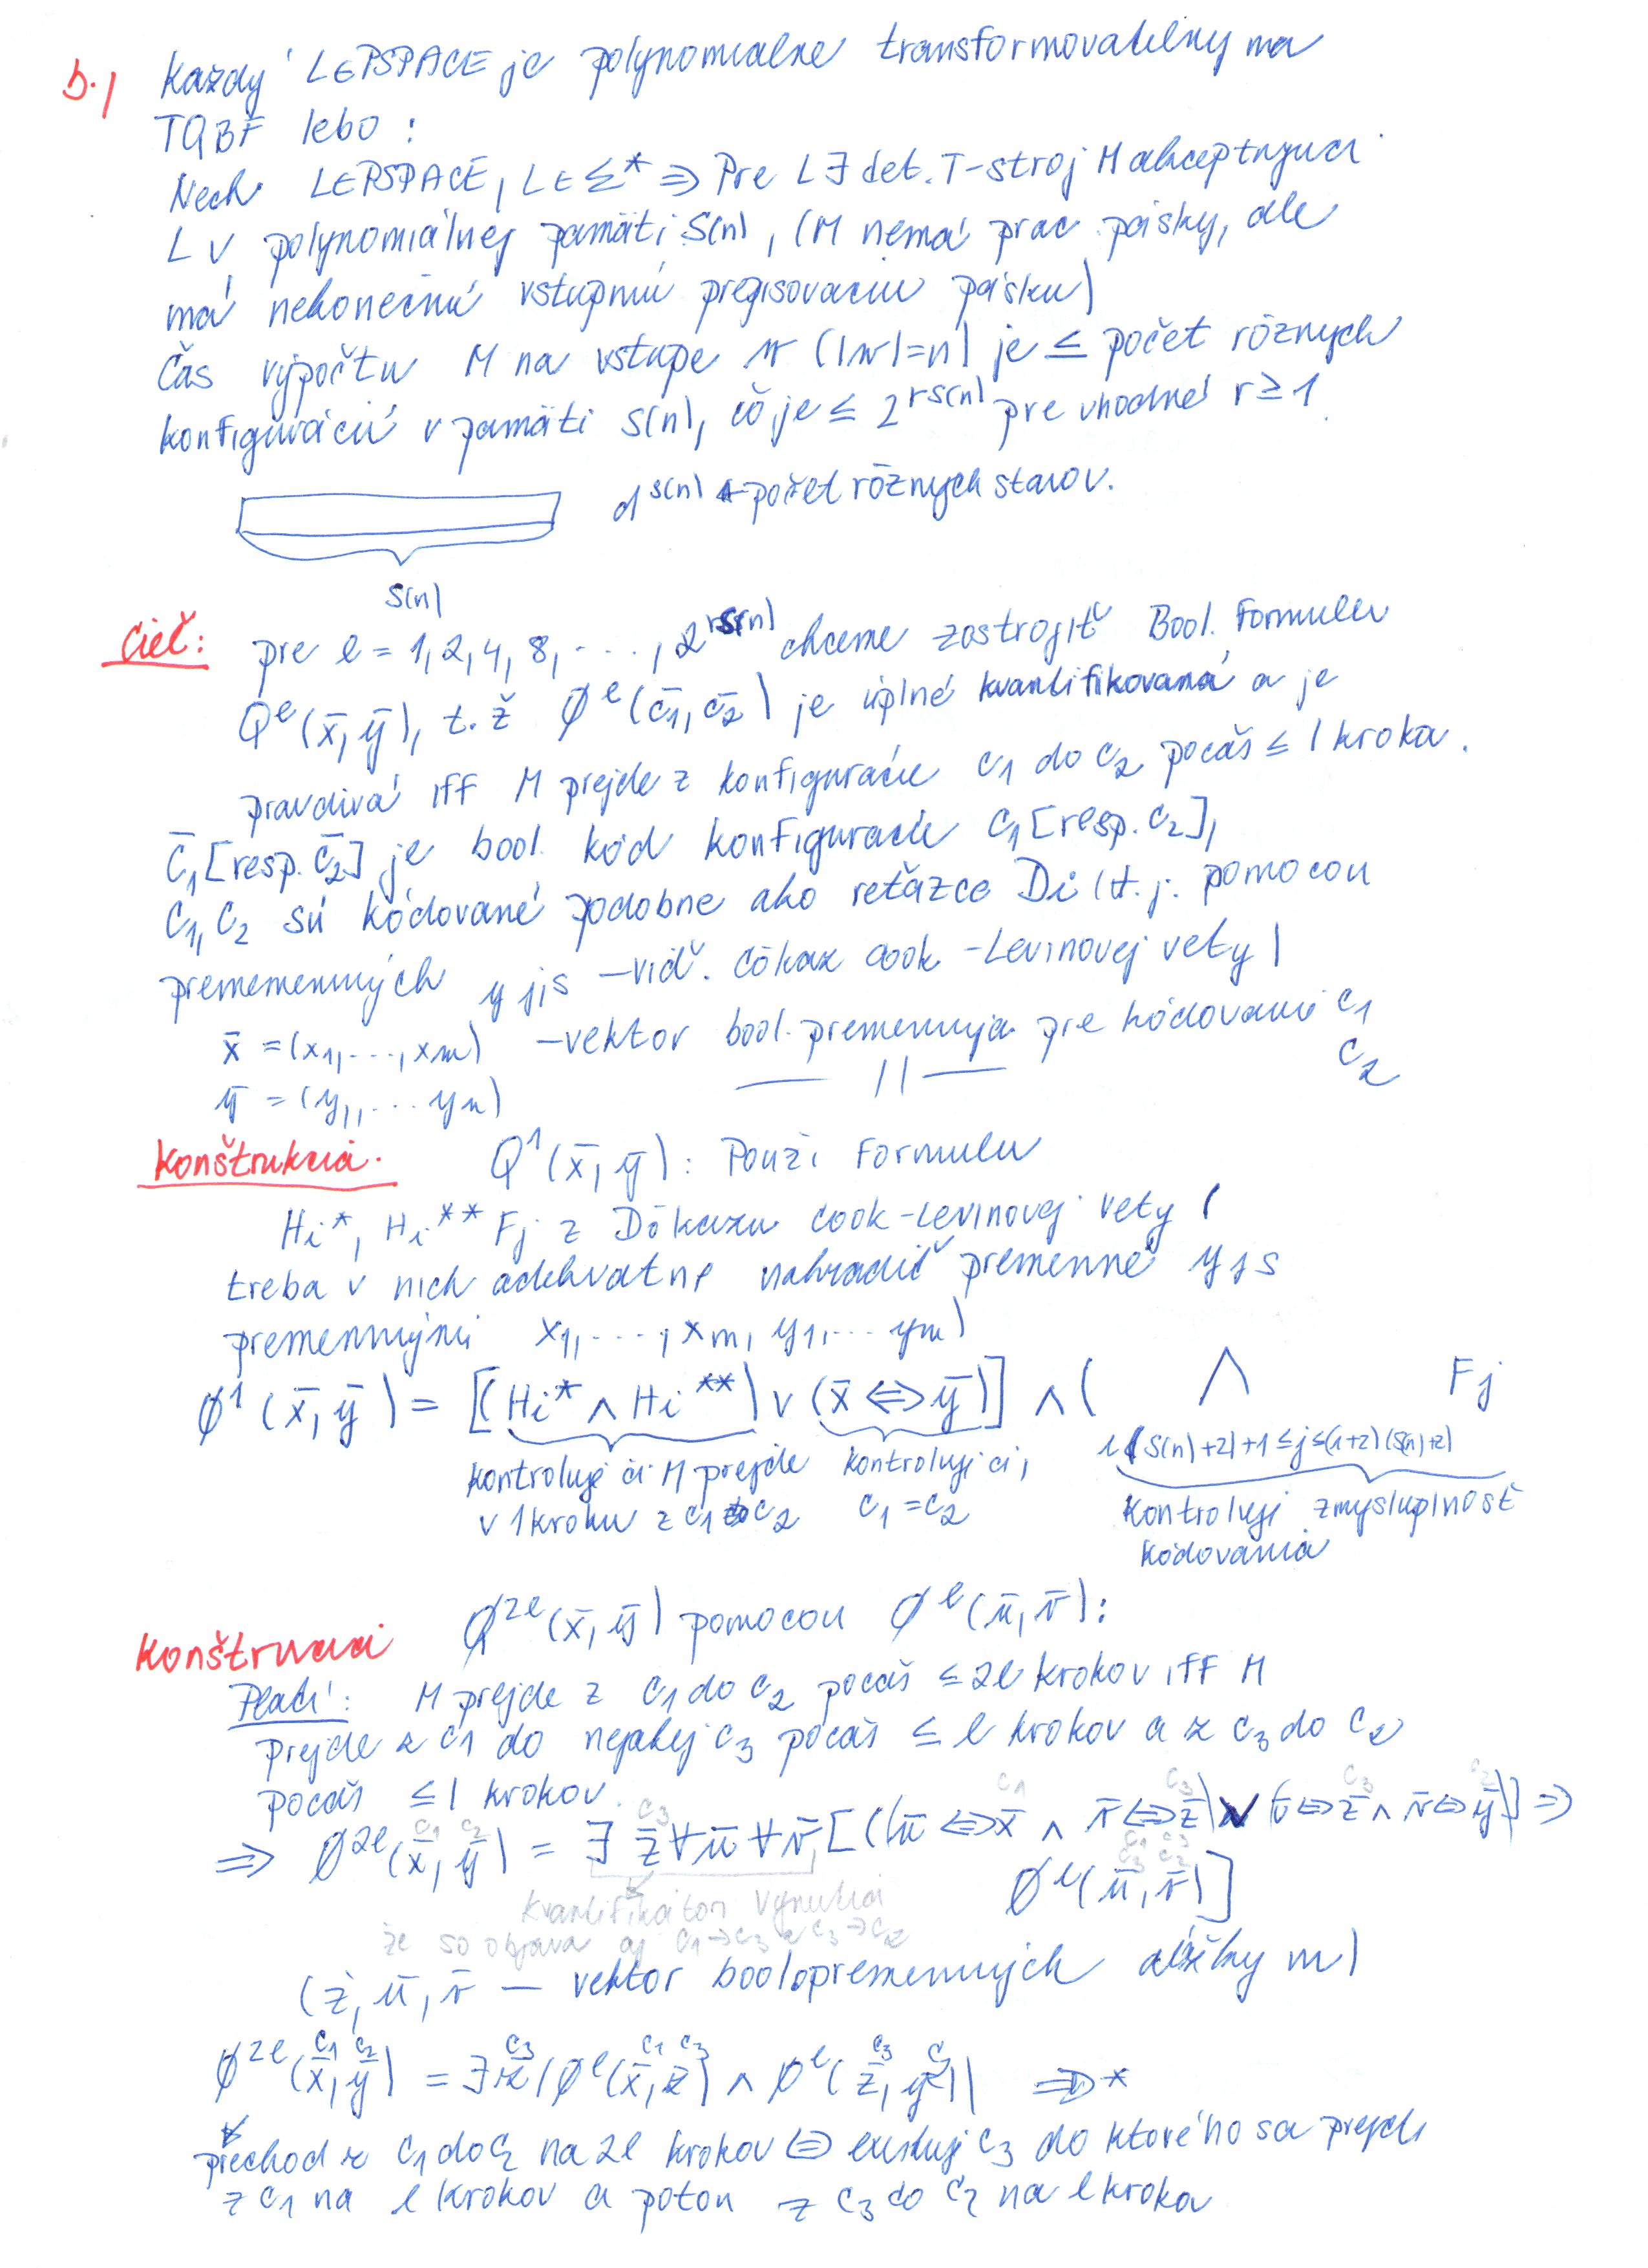 b.) Každý L∈PSPACE je polynomialne transformovatelny na
TQBF lebo :
Nech L∈PSPACE, L∈Σ* ⇒ Pre L ∃ det. T-stroj M akceptujuci
L v polynomiálnej pamäti S(n), (M nemá prac. pásky, ale
má nekonečnú vstupnú prepisovaciu pásku)
Čas výpočtu M na vstupe w (|w|=n) je ≤ počet rôznych
konfigurácií v pamäti S(n), čo je ≤ 2^{rS(n)} pre vhodné r≥1.
d^{S(n)} ← počet rôznych stavov.
S(n)
Cieľ: pre l = 1,2,4,8,...,2^{rS(n)} chceme zostrojiť Bool. formulu
Q^l(x̄,ȳ), t.ž ∅^l(c̄1,c̄2) je úplné kvantifikovaná a je
pravdivá iff M prejde z konfigurácie c1 do c2 počaš ≤ l kroka.
c̄1 [resp. c̄2] je bool. kód konfiguracie c1 [resp. c2],
c1, c2 sú kódované podobne ako reťazce Di (t.j. pomocou
prememenných yjs – viď. Dôkaz Cook-Levinovej vety)
x̄ = (x1,...,xm) – vektor bool. premennýa pre kódovani c1
ȳ = (y1,,...yn) — || — c2
Konštrukcia. Q^1(x̄,ȳ): Použi formulu
Hi*, Hi** Fj z Dôkazu Cook-Levinovej vety (
treba v nich adekvatne nahradiť premenné yjs
premennými x1,...,xm, y1,...ym)
∅^1(x̄,ȳ) = [(Hi* ∧ Hi**) ∨ (x̄ ⇔ ȳ)] ∧ ( ∧ Fj
i(S(n)+2)+1 ≤ j ≤ (i+2)(S(n)+2)
kontroluje či M prejde kontroluje či, kontroluje zmysluplnosť
v 1 kroku z c1 do c2 c1 = c2 kódovania
Konštrukci Q^{2l}(x̄,ȳ) pomocou ∅^l(ū,v̄):
Platí: M prejde z c1 do c2 počaš ≤ 2l krokov iff M
prejde z c1 do nejakej c3 počaš ≤ l krokov a z c3 do c2
počaš ≤ l krokov.
⇒ ∅^{2l}(x̄,ȳ) = ∃z̄ ∀ū ∀v̄ [((ū ⇔ x̄ ∧ v̄ ⇔ z̄) ∨ (ū ⇔ z̄ ∧ v̄ ⇔ ȳ)) ⇒
∅^l(ū,v̄)]
kvantifikátor vynucuá
že so objava aj c1→c3 a c3→c2
(z̄, ū, v̄ — vektor boolopremenných dĺžky m)
∅^{2l}(x̄,ȳ) = ∃z̄ (∅^l(x̄,z̄) ∧ ∅^l(z̄,ȳ)) ⇒ *
přechod z c1 do c2 na 2l krokov ⇔ existuje c3 do ktorého sa prejde
z c1 na l krokov a poton z c3 do c2 na l kroka